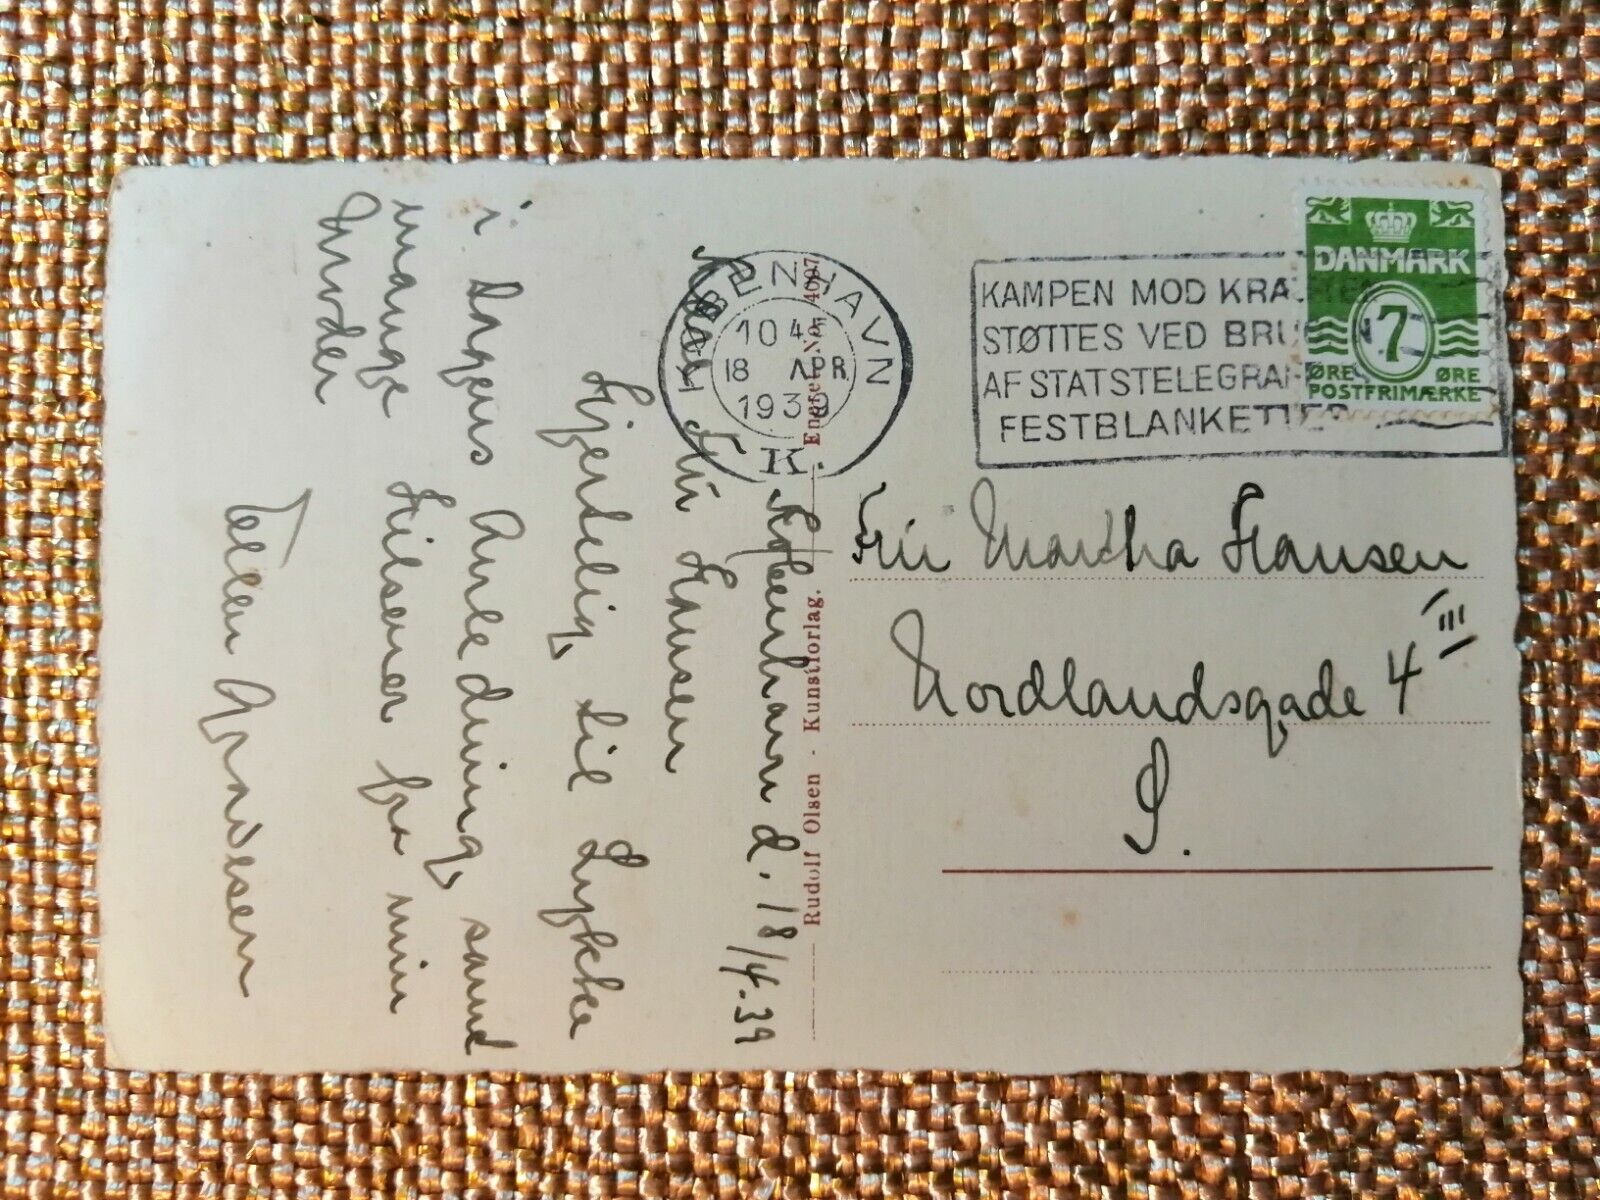 København d. 18/4.39
Kære Fru Hansen
Hjertelig til Lykke
i Dagens Anledning, samt
mange Hilsener fra min
Moder
Ellen
KØBENHAVN
10 4
18 APR
1939
K.
KAMPEN MOD KRÆ
STØTTES VED BRU
AF STATSTELEGRAF
FESTBLANKETTER
DANMARK
7
ØRE ØRE
POSTFRIMÆRKE
Fru Martha Hansen
Nordlandsgade 4 III
S.
Rudolf Olsen - Kunstforlag. Eneret No. 4097